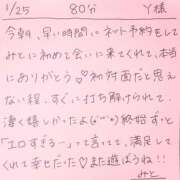 1/25 80分 Y様
今朝、早い時間にネット予約をして
みとに初めて会いに来てくれて、本当
にありがとう♡初対面だと思え
ない程、すぐに打ち解けられて、
凄く嬉しかったよ(*´ω`*)終始ずっと
「エロすぎるー」って言ってて、満足して
くれて幸せだった♡また遊ぼうね!!
みと